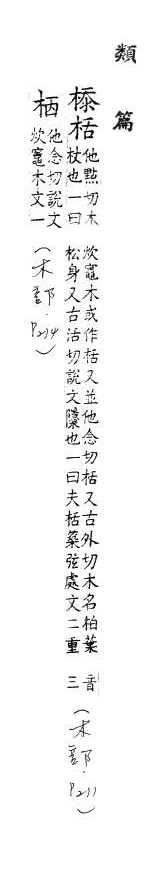 類篇
㮇栝他點切木杖也一曰炊竈木或作栝又並他念切栝又古外切木名柏葉松身又古活切說文檃也一曰夫栝築弦處文二重音三(木部.P211)
㭠他念切說文炊竈木文一(木部.P214)